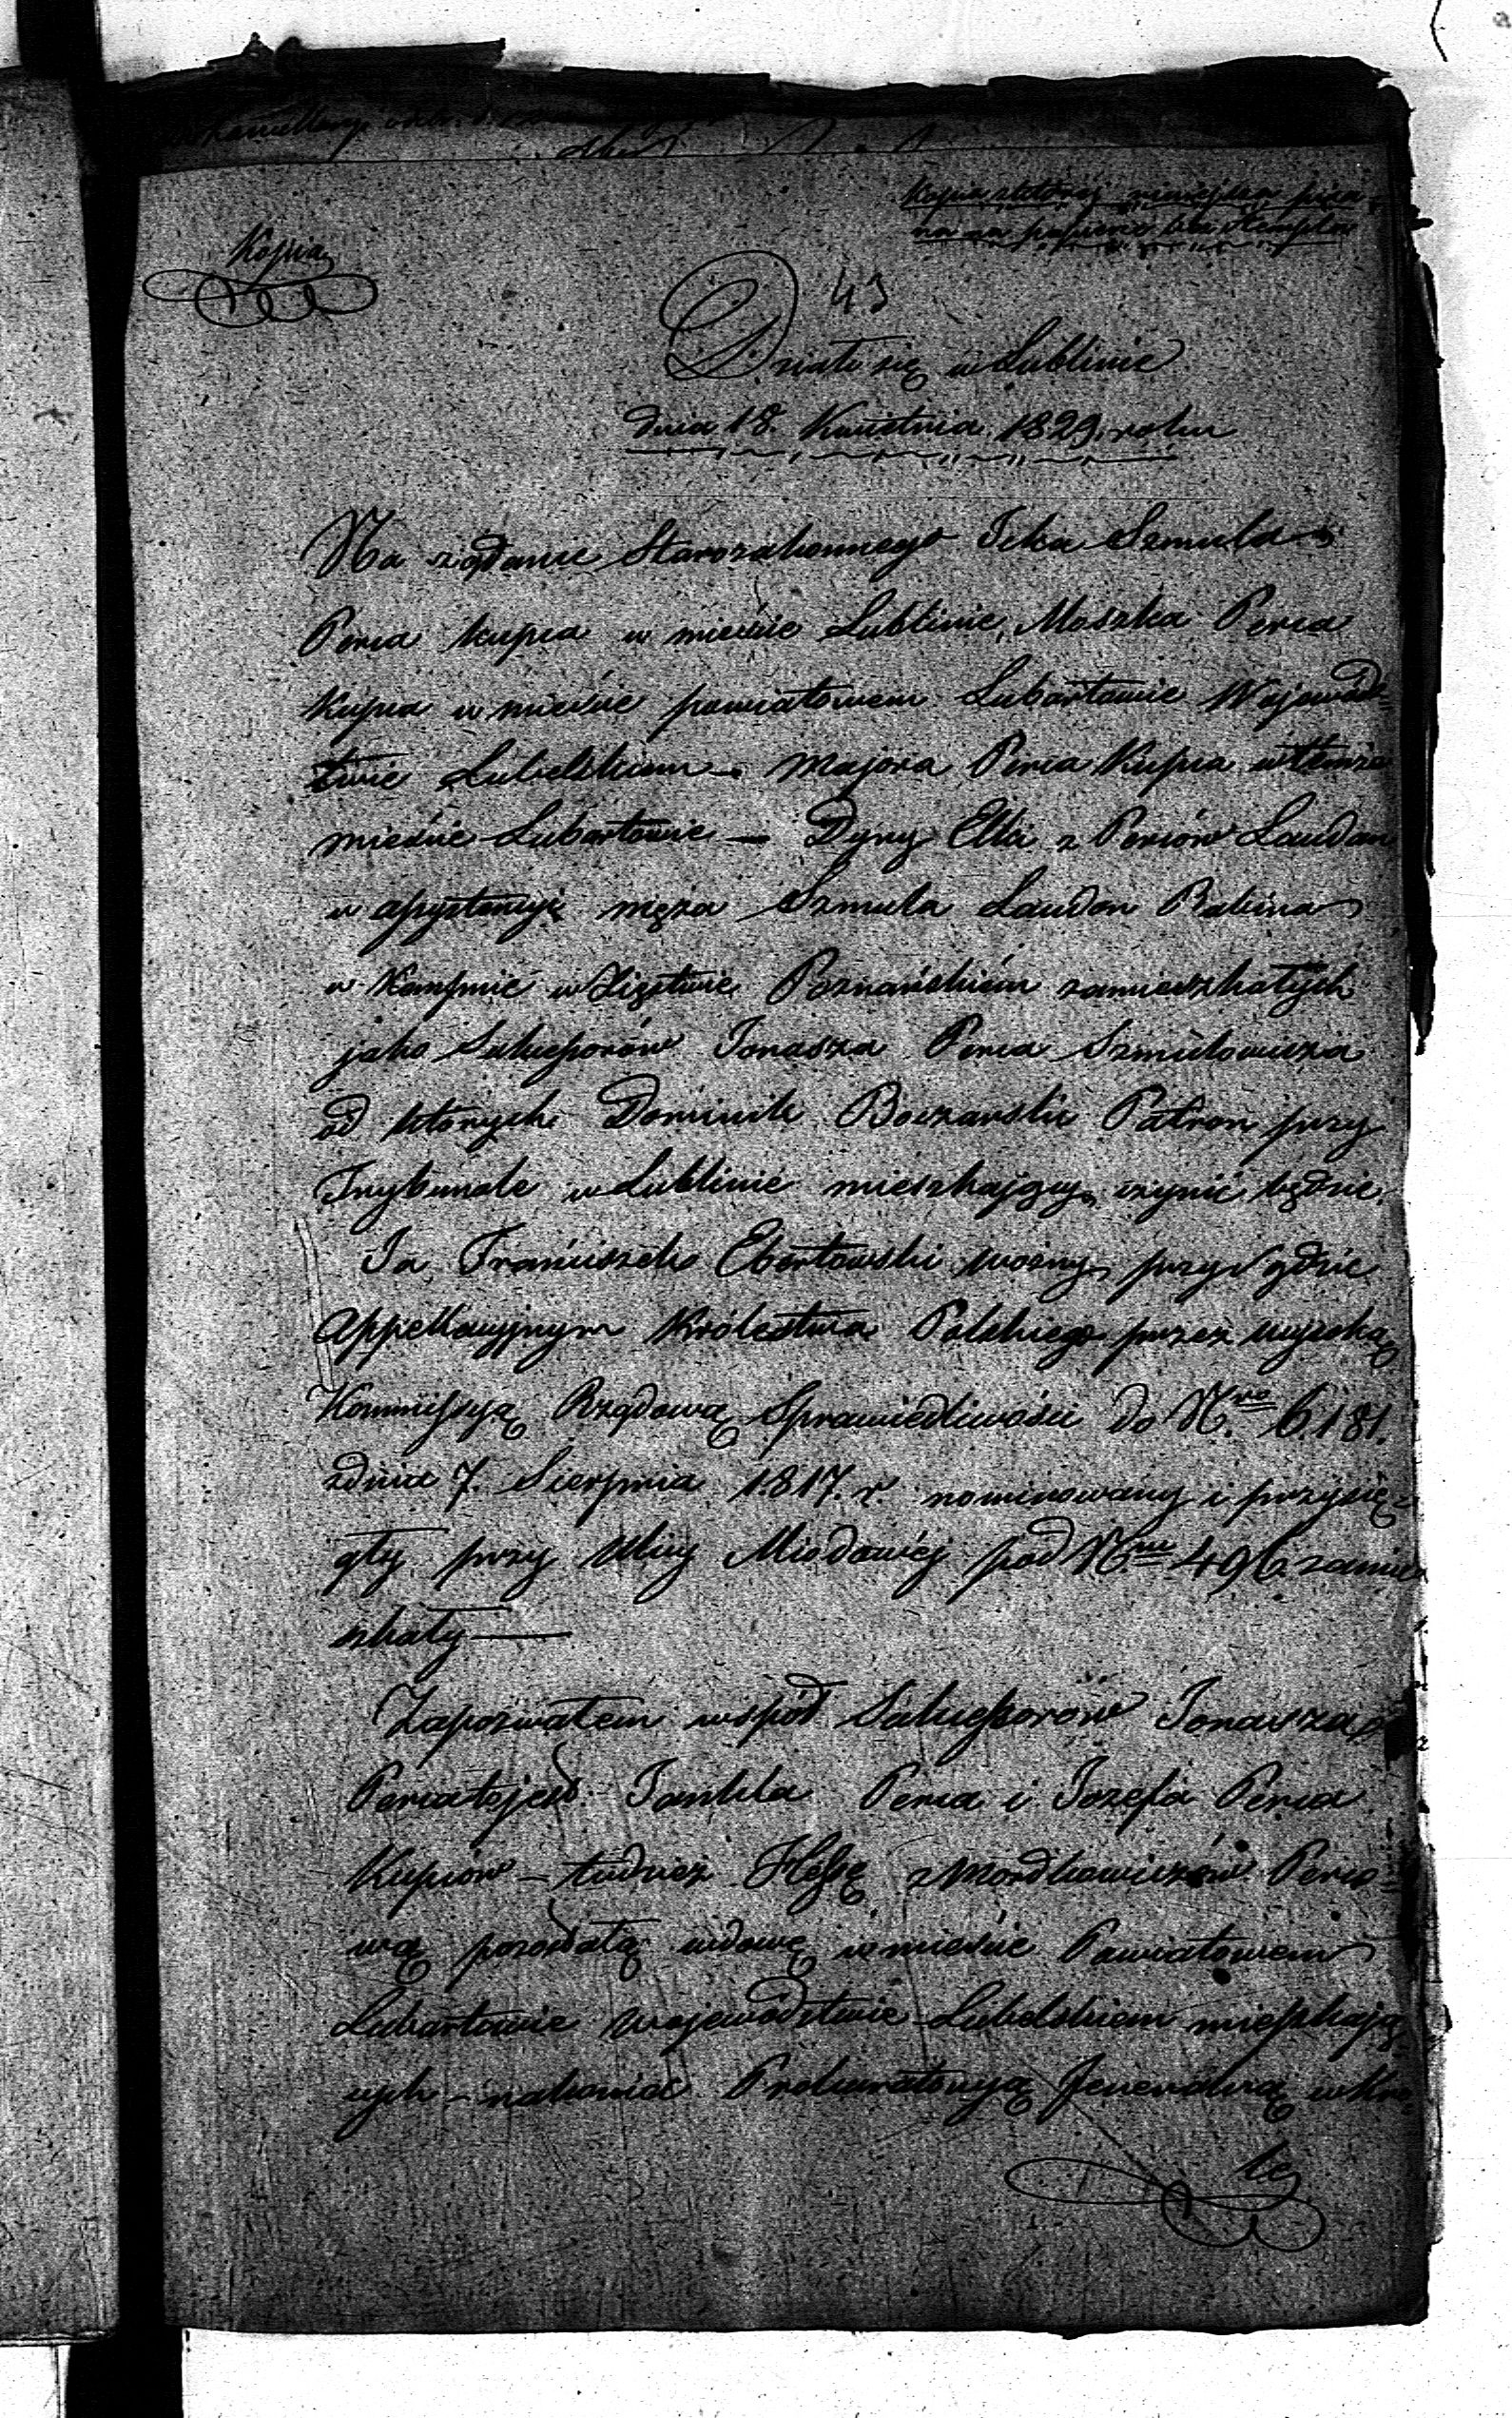 Kopia z którey niniejsza pisa
na na papierze bez stempla
Kopia
43
Działo się w Lublinie
dnia 18. Kwietnia 1829. roku
Na żądanie Starozakonnego Icka Szmula
Perca kupca w mieście Lublinie, Moszka Perca
Kupca w mieście powiatowem Lubartowie Wojewódz=
twie Lubelskiem – Majora Perca Kupca w temże
mieście Lubartowie – Dyny Elki z Perców Laudon
w assystencyi męża Szmula Laudon Rabina
w Kempnie w Xięstwie Poznańskiém zamieszkałych
jako Sukcessorów Jonasza Perca Szmulowicza
od których Dominik Boczarski Patron przy
Trybunale w Lublinie mieszkający czynić będzie.
Ja Franciszek Ebertowski woźny przy Sądzie
Appellacyjnym Królestwa Polskiego przez wysoką
Kommissyą Rządową Sprawiedliwości do N.ro 6.181.
z dnia 7. Sierpnia 1817. r. nominowany i przysię=
gły przy Ulicy Miodowéj pod N.rm 496. zamie
szkały —
Zapozwałem współ Sukcessorów Jonasza
Perca to jest Jankla Perca i Jozefa Perca
Kupców – tudzież Hessę z Mordkowiczów Perco=
wą pozostałą wdowę w mieście Powiatowem
Lubartowie Województwie Lubelskiem mieszkają=
cych – nakoniec Prokuratoryą Jeneralną w Kró
le